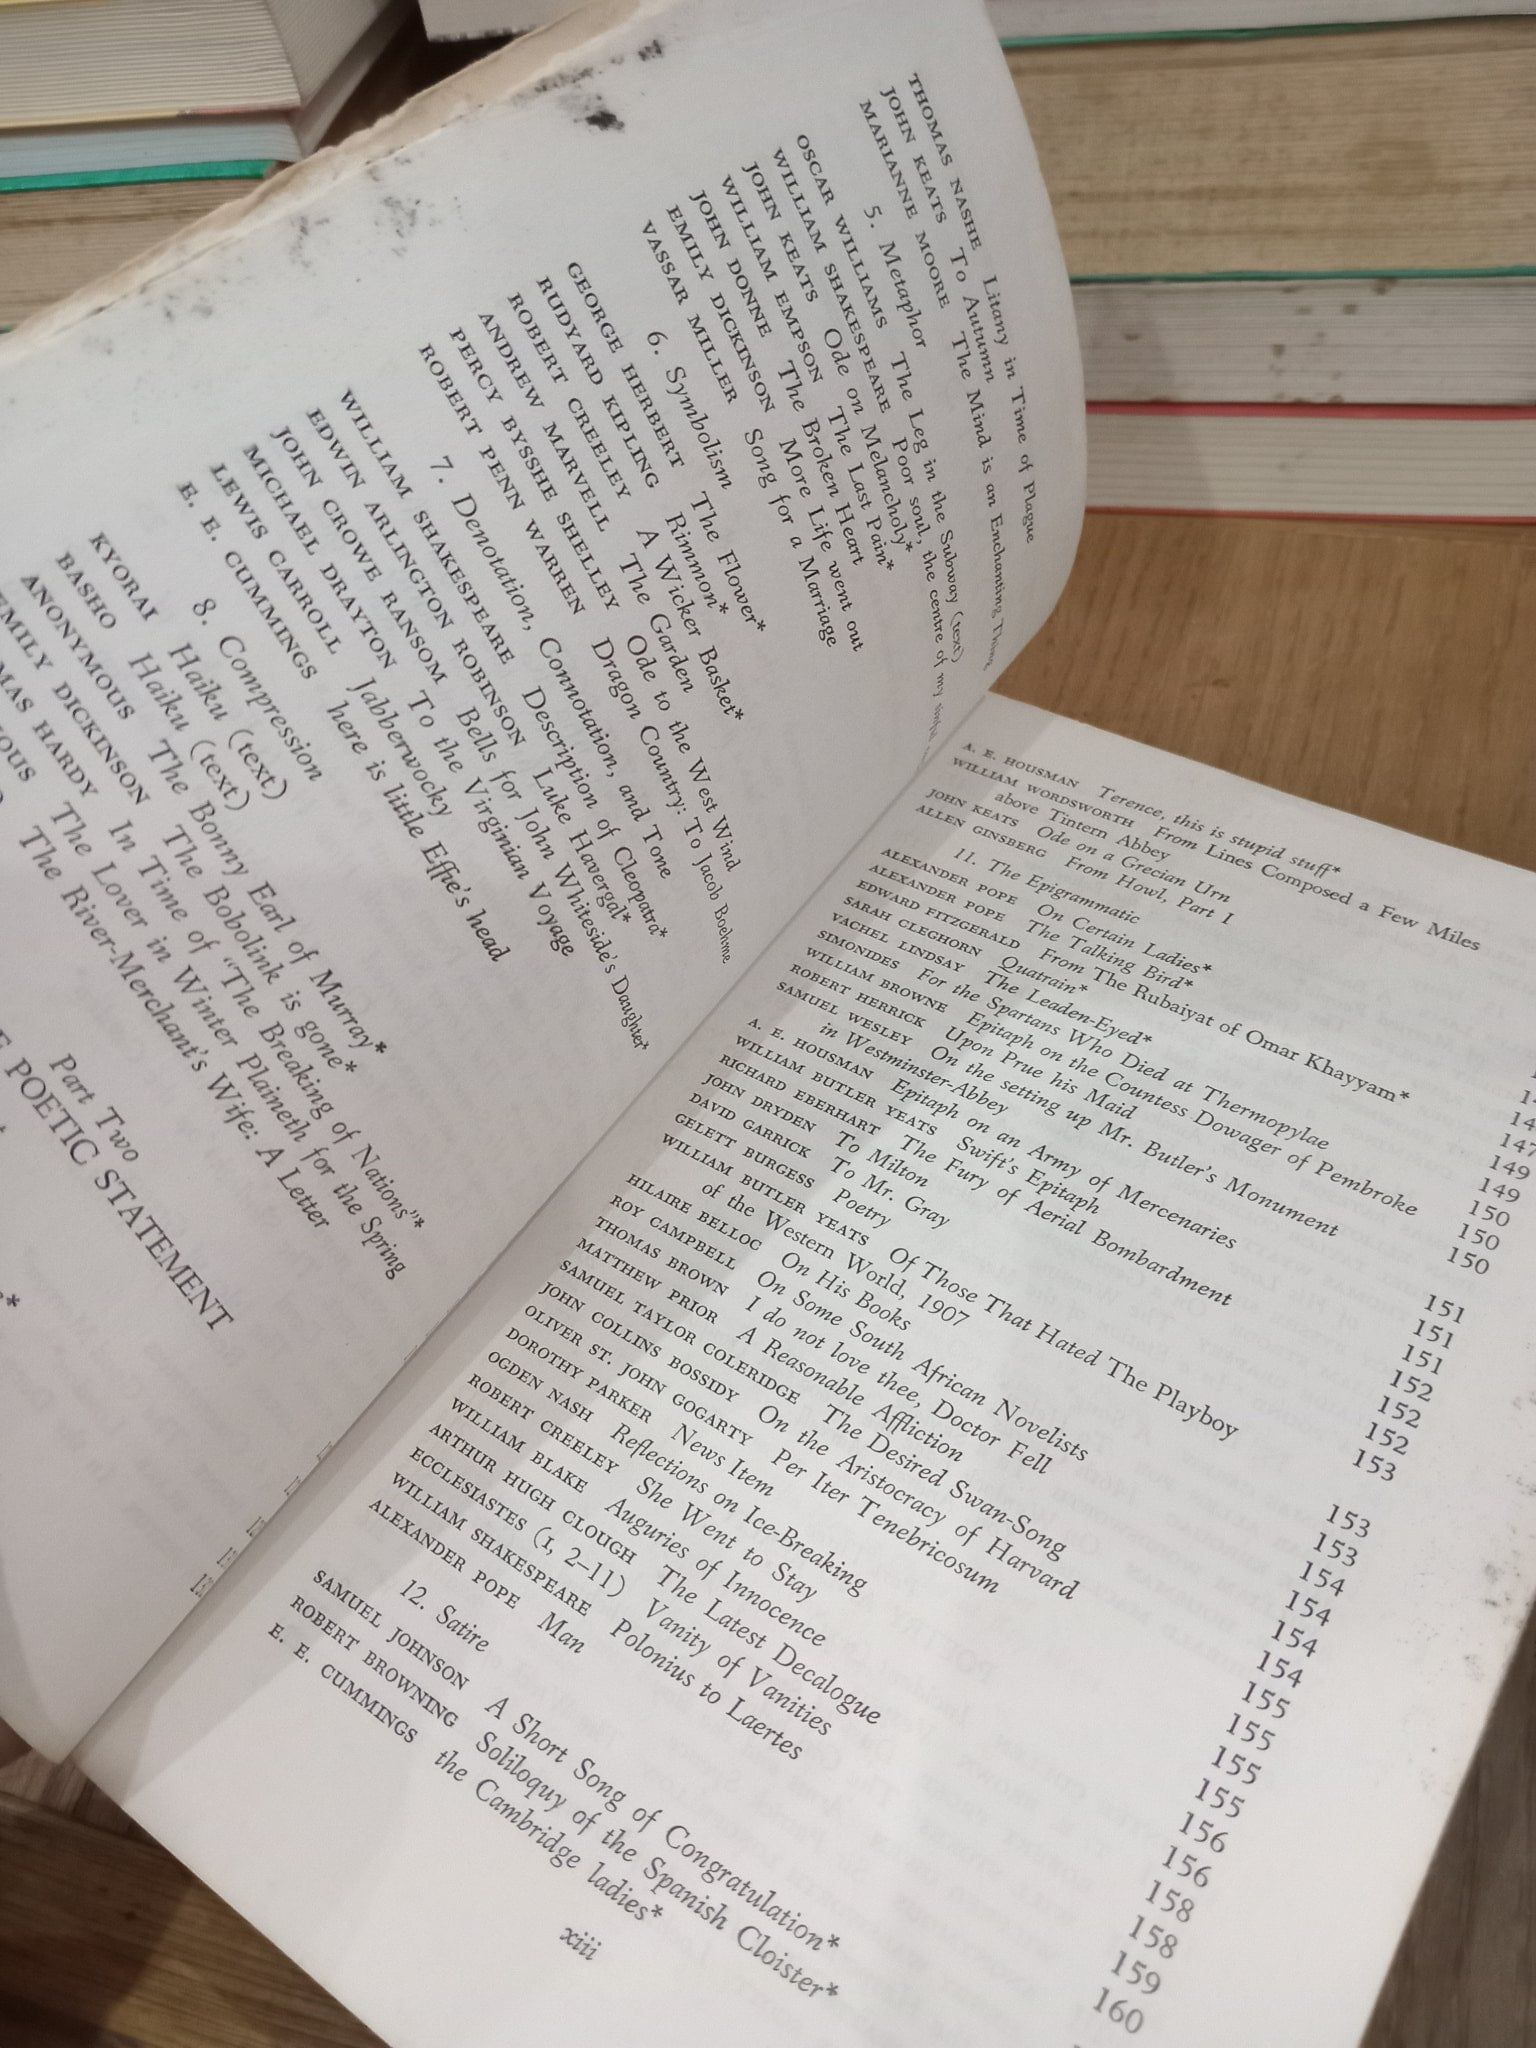 THOMAS NASHE Litany in Time of Plague
JOHN KEATS To Autumn
MARIANNE MOORE The Mind is an Enchanting Thing
5. Metaphor
OSCAR WILLIAMS The Leg in the Subway (text)
WILLIAM SHAKESPEARE Poor soul, the centre of my sinful
JOHN KEATS Ode on Melancholy*
WILLIAM EMPSON The Last Pain*
JOHN DONNE The Broken Heart
EMILY DICKINSON More Life went out
VASSAR MILLER Song for a Marriage
6. Symbolism
GEORGE HERBERT The Flower*
RUDYARD KIPLING Rimmon*
ROBERT CREELEY A Wicker Basket*
ANDREW MARVELL The Garden
PERCY BYSSHE SHELLEY Ode to the West Wind
ROBERT PENN WARREN Dragon Country: To Jacob Boehme
7. Denotation, Connotation, and Tone
WILLIAM SHAKESPEARE Description of Cleopatra*
EDWIN ARLINGTON ROBINSON Luke Havergal*
JOHN CROWE RANSOM Bells for John Whiteside's Daughter*
MICHAEL DRAYTON To the Virginian Voyage
LEWIS CARROLL Jabberwocky
E. E. CUMMINGS here is little Effie's head
8. Compression
KYORAI Haiku (text)
BASHO Haiku (text)
ANONYMOUS The Bonny Earl of Murray*
EMILY DICKINSON The Bobolink is gone*
HARDY In Time of "The Breaking of Nations"*
The Lover in Winter Plaineth for the Spring
The River-Merchant's Wife: A Letter
Part Two
POETIC STATEMENT
A. E. HOUSMAN Terence, this is stupid stuff*
WILLIAM WORDSWORTH From Lines Composed a Few Miles
above Tintern Abbey
JOHN KEATS Ode on a Grecian Urn
ALLEN GINSBERG From Howl, Part I
11. The Epigrammatic
ALEXANDER POPE On Certain Ladies*
ALEXANDER POPE The Talking Bird*
EDWARD FITZGERALD From The Rubaiyat of Omar Khayyam*
SARAH CLEGHORN Quatrain*
VACHEL LINDSAY The Leaden-Eyed*
SIMONIDES For the Spartans Who Died at Thermopylae
WILLIAM BROWNE Epitaph on the Countess Dowager of Pembroke
ROBERT HERRICK Upon Prue his Maid
SAMUEL WESLEY On the setting up Mr. Butler's Monument
in Westminster-Abbey
A. E. HOUSMAN Epitaph on an Army of Mercenaries
WILLIAM BUTLER YEATS Swift's Epitaph
RICHARD EBERHART The Fury of Aerial Bombardment
JOHN DRYDEN To Milton
DAVID GARRICK To Mr. Gray
GELETT BURGESS Poetry
WILLIAM BUTLER YEATS Of Those That Hated The Playboy
of the Western World, 1907
HILAIRE BELLOC On His Books
ROY CAMPBELL On Some South African Novelists
THOMAS BROWN I do not love thee, Doctor Fell
MATTHEW PRIOR A Reasonable Affliction
SAMUEL TAYLOR COLERIDGE The Desired Swan-Song
JOHN COLLINS BOSSIDY On the Aristocracy of Harvard
OLIVER ST. JOHN GOGARTY Per Iter Tenebricosum
DOROTHY PARKER News Item
OGDEN NASH Reflections on Ice-Breaking
ROBERT CREELEY She Went to Stay
WILLIAM BLAKE Auguries of Innocence
ARTHUR HUGH CLOUGH The Latest Decalogue
ECCLESIASTES (1, 2–11) Vanity of Vanities
WILLIAM SHAKESPEARE Polonius to Laertes
ALEXANDER POPE Man
12. Satire
SAMUEL JOHNSON A Short Song of Congratulation*
ROBERT BROWNING Soliloquy of the Spanish Cloister*
E. E. CUMMINGS the Cambridge ladies*
147
149
149
150
150
150
151
151
151
152
152
152
153
153
153
154
154
154
154
155
155
155
155
156
156
158
158
159
160
xiii